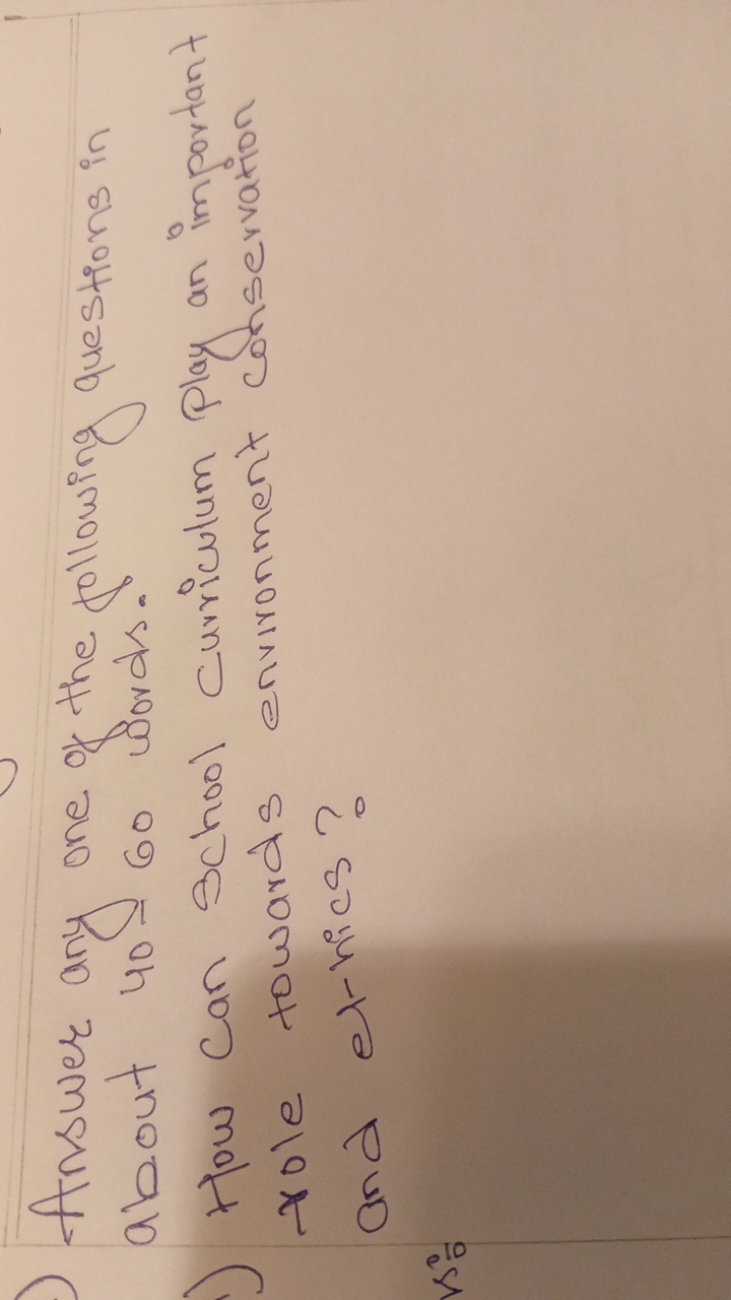 Answer any one of the following questions in
about 40-60 words.
How can School curriculum play an important
role towards environment conservation
and ethics?